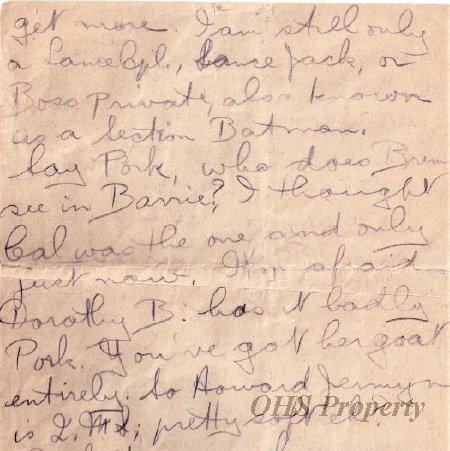 get more. I am still only
a Lance Cpl., Lance Jack, or
Boss Private, also known
as a Section Batman.
Say Pork, who does Brem
see in Barrie? I thought
Cal was the one and only
just now. I'm afraid
Dorothy B. has it badly
Pork. You've got her goat
entirely. So Howard Jermyn
is 2. ; pretty soft eh.
OHS Property